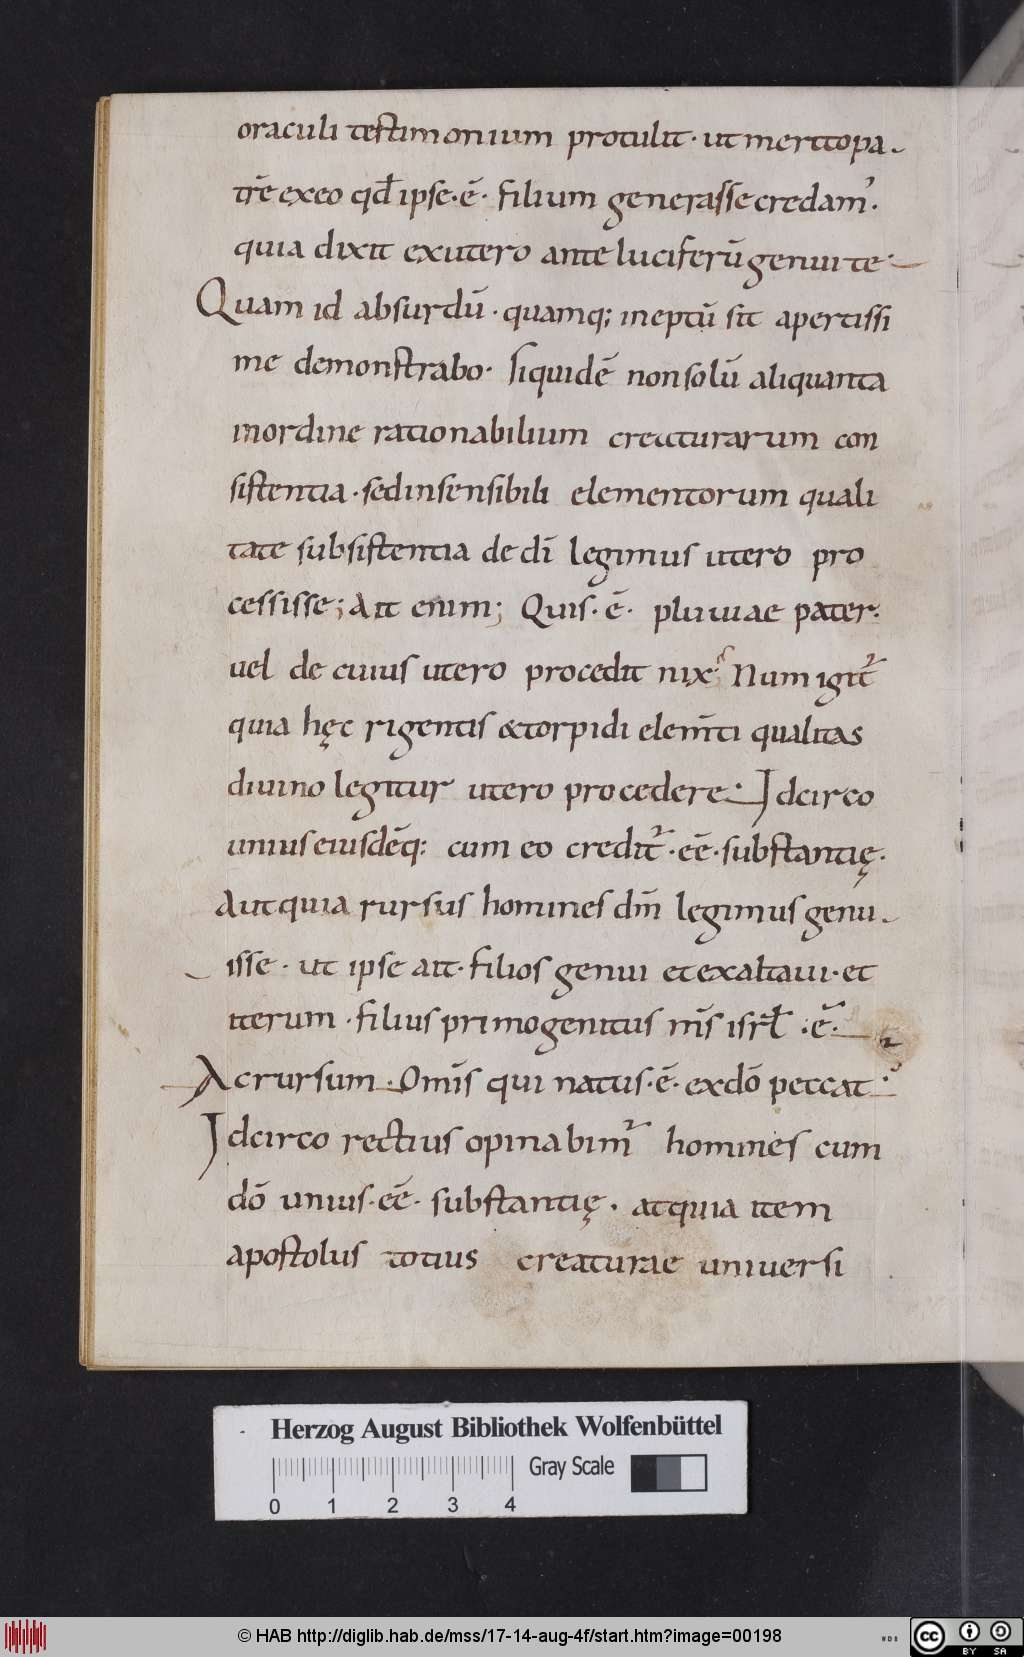 oraculi testimonium protulit · ut meritopa
tr̄e exeo qđ ipse · ē · filium generasse credam᷒ ·
quia dixit exutero ante luciferū genui te ·
Quam id absurdū · quamq; ineptū sit apertissi
me demonstrabo · siquidē nonsolū aliquanta
inordine rationabilium creaturarum con
sistentia · sedinsensibili elementorum quali
tate subsistentia de dī legimus utero pro
cessisse; Ait enim; Quis · ē · pluuiae pater ·
uel de cuius utero procedit nix · Num igit᷒
quia hęc rigentis &torpidi elem̄ti qualitas
diuino legitur utero procedere · Idcirco
unius eiusdēq: cum eo credit᷒ · eē · substantię ·
Aut quia rursus homines dm̄ legimus genu
isse · ut ipse ait · filios genui et exaltaui · et
iterum · filius primogenitus m̄s isrł · ē ·
Ac rursum · Om̄is qui natus · ē · exdō peccat ·
Idcirco rectius opinabim᷒ homines cum
dō unius · eē · substantię · at quia item
apostolus totius creaturae uniuersi
Herzog August Bibliothek Wolfenbüttel
Gray Scale
0 1 2 3 4
© HAB http://diglib.hab.de/mss/17-14-aug-4f/start.htm?image=00198
WDB
cc BY SA